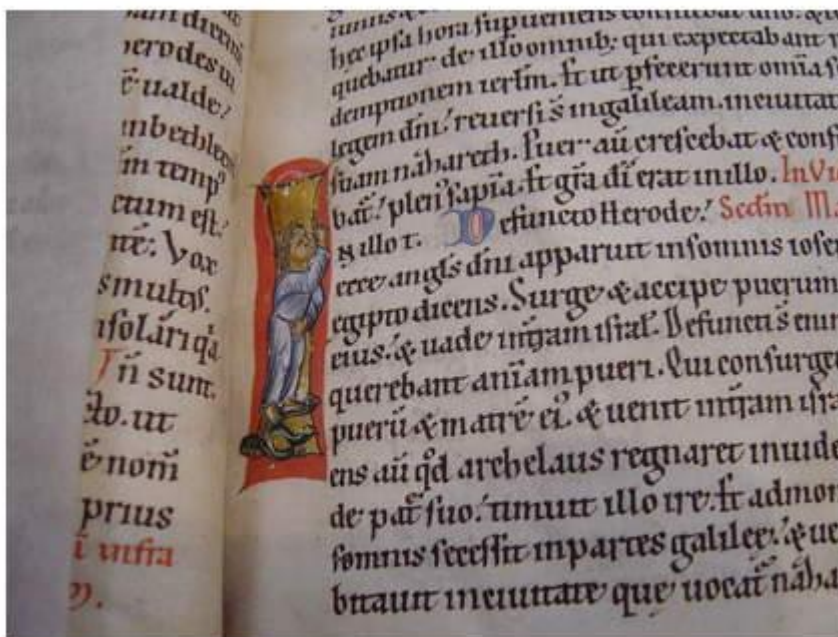 am dicen
herodes ui
ē ualde:
in bethlee
m temp⁹
etum est:
ntē: Vox
s multus.
nsolari q̄a
Iñ sunt.
ē nom̄
prius
infra
hec ipsa hora superueniens confitebat dn̄o: &
quebatur de illo omnib; qui expectabant r
demptionem ierl̄m. Et ut pfecerunt om̄ia s
legem dn̄i: reuersi s̄ in galileam in ciuitat
suam nazareth. Puer aū crescebat & conf
bat̄: plen⁹ sapīa. Et gr̄a dī erat in illo. In Vi
N illo t. Defuncto Herode: Scd̄m M
ecce angl̄s dn̄i apparuit in somnis iosep
egipto dicens. Surge & accipe puerum
eius: & uade in t̄ram isrl̄. Defuncti s̄ enim
querebant anīam pueri. Qui consurge
puerū & matrē ei⁹. & uenit in t̄ram isra
ens aū q̄d archelaus regnaret in iude
de pat̄ suo: timuit illo ire. Et admon
somnis secessit in partes galilee: & ue
bitauit in ciuitate que uocat̄ naza